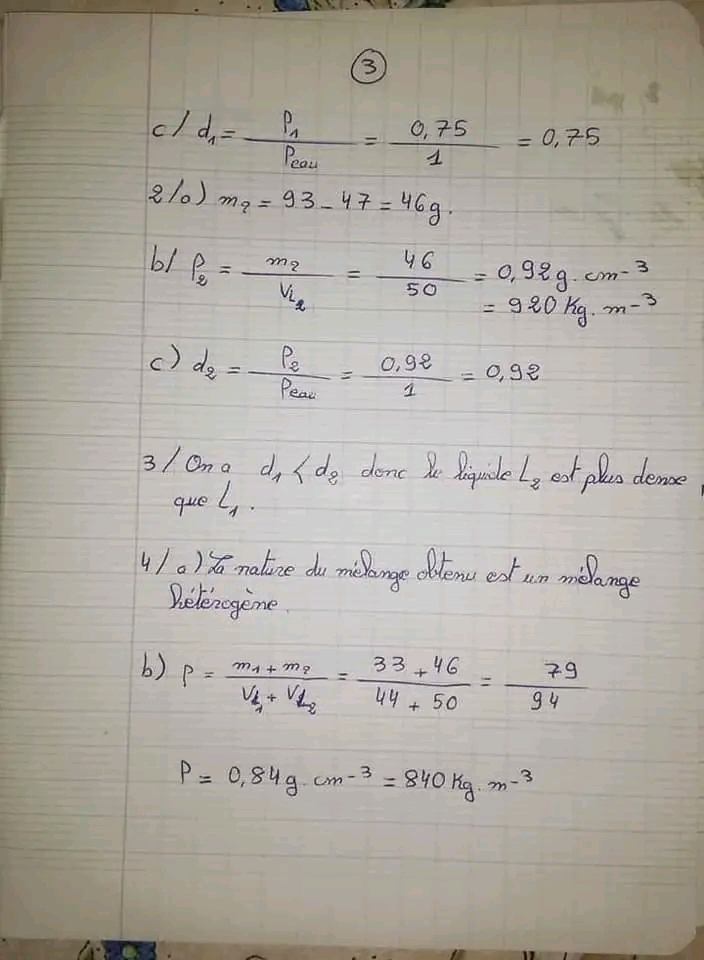 3
c/ d₁ = P₁ / Peau = 0,75 / 1 = 0,75
2/a) m₂ = 93 - 47 = 46g.
b/ P₂ = m₂ / VL₂ = 46 / 50 = 0,92g. cm-³
= 920 Kg. m-³
c) d₂ = P₂ / Peau = 0,92 / 1 = 0,92
3/ On a d₁ < d₂ donc le liquide L₂ est plus dense
que L₁.
4/ a) La nature du mélange obtenu est un mélange
hétérogène.
b) P = m₁ + m₂ / VL₁ + VL₂ = 33 + 46 / 44 + 50 = 79 / 94
P = 0,84g. cm-³ = 840Kg. m-³